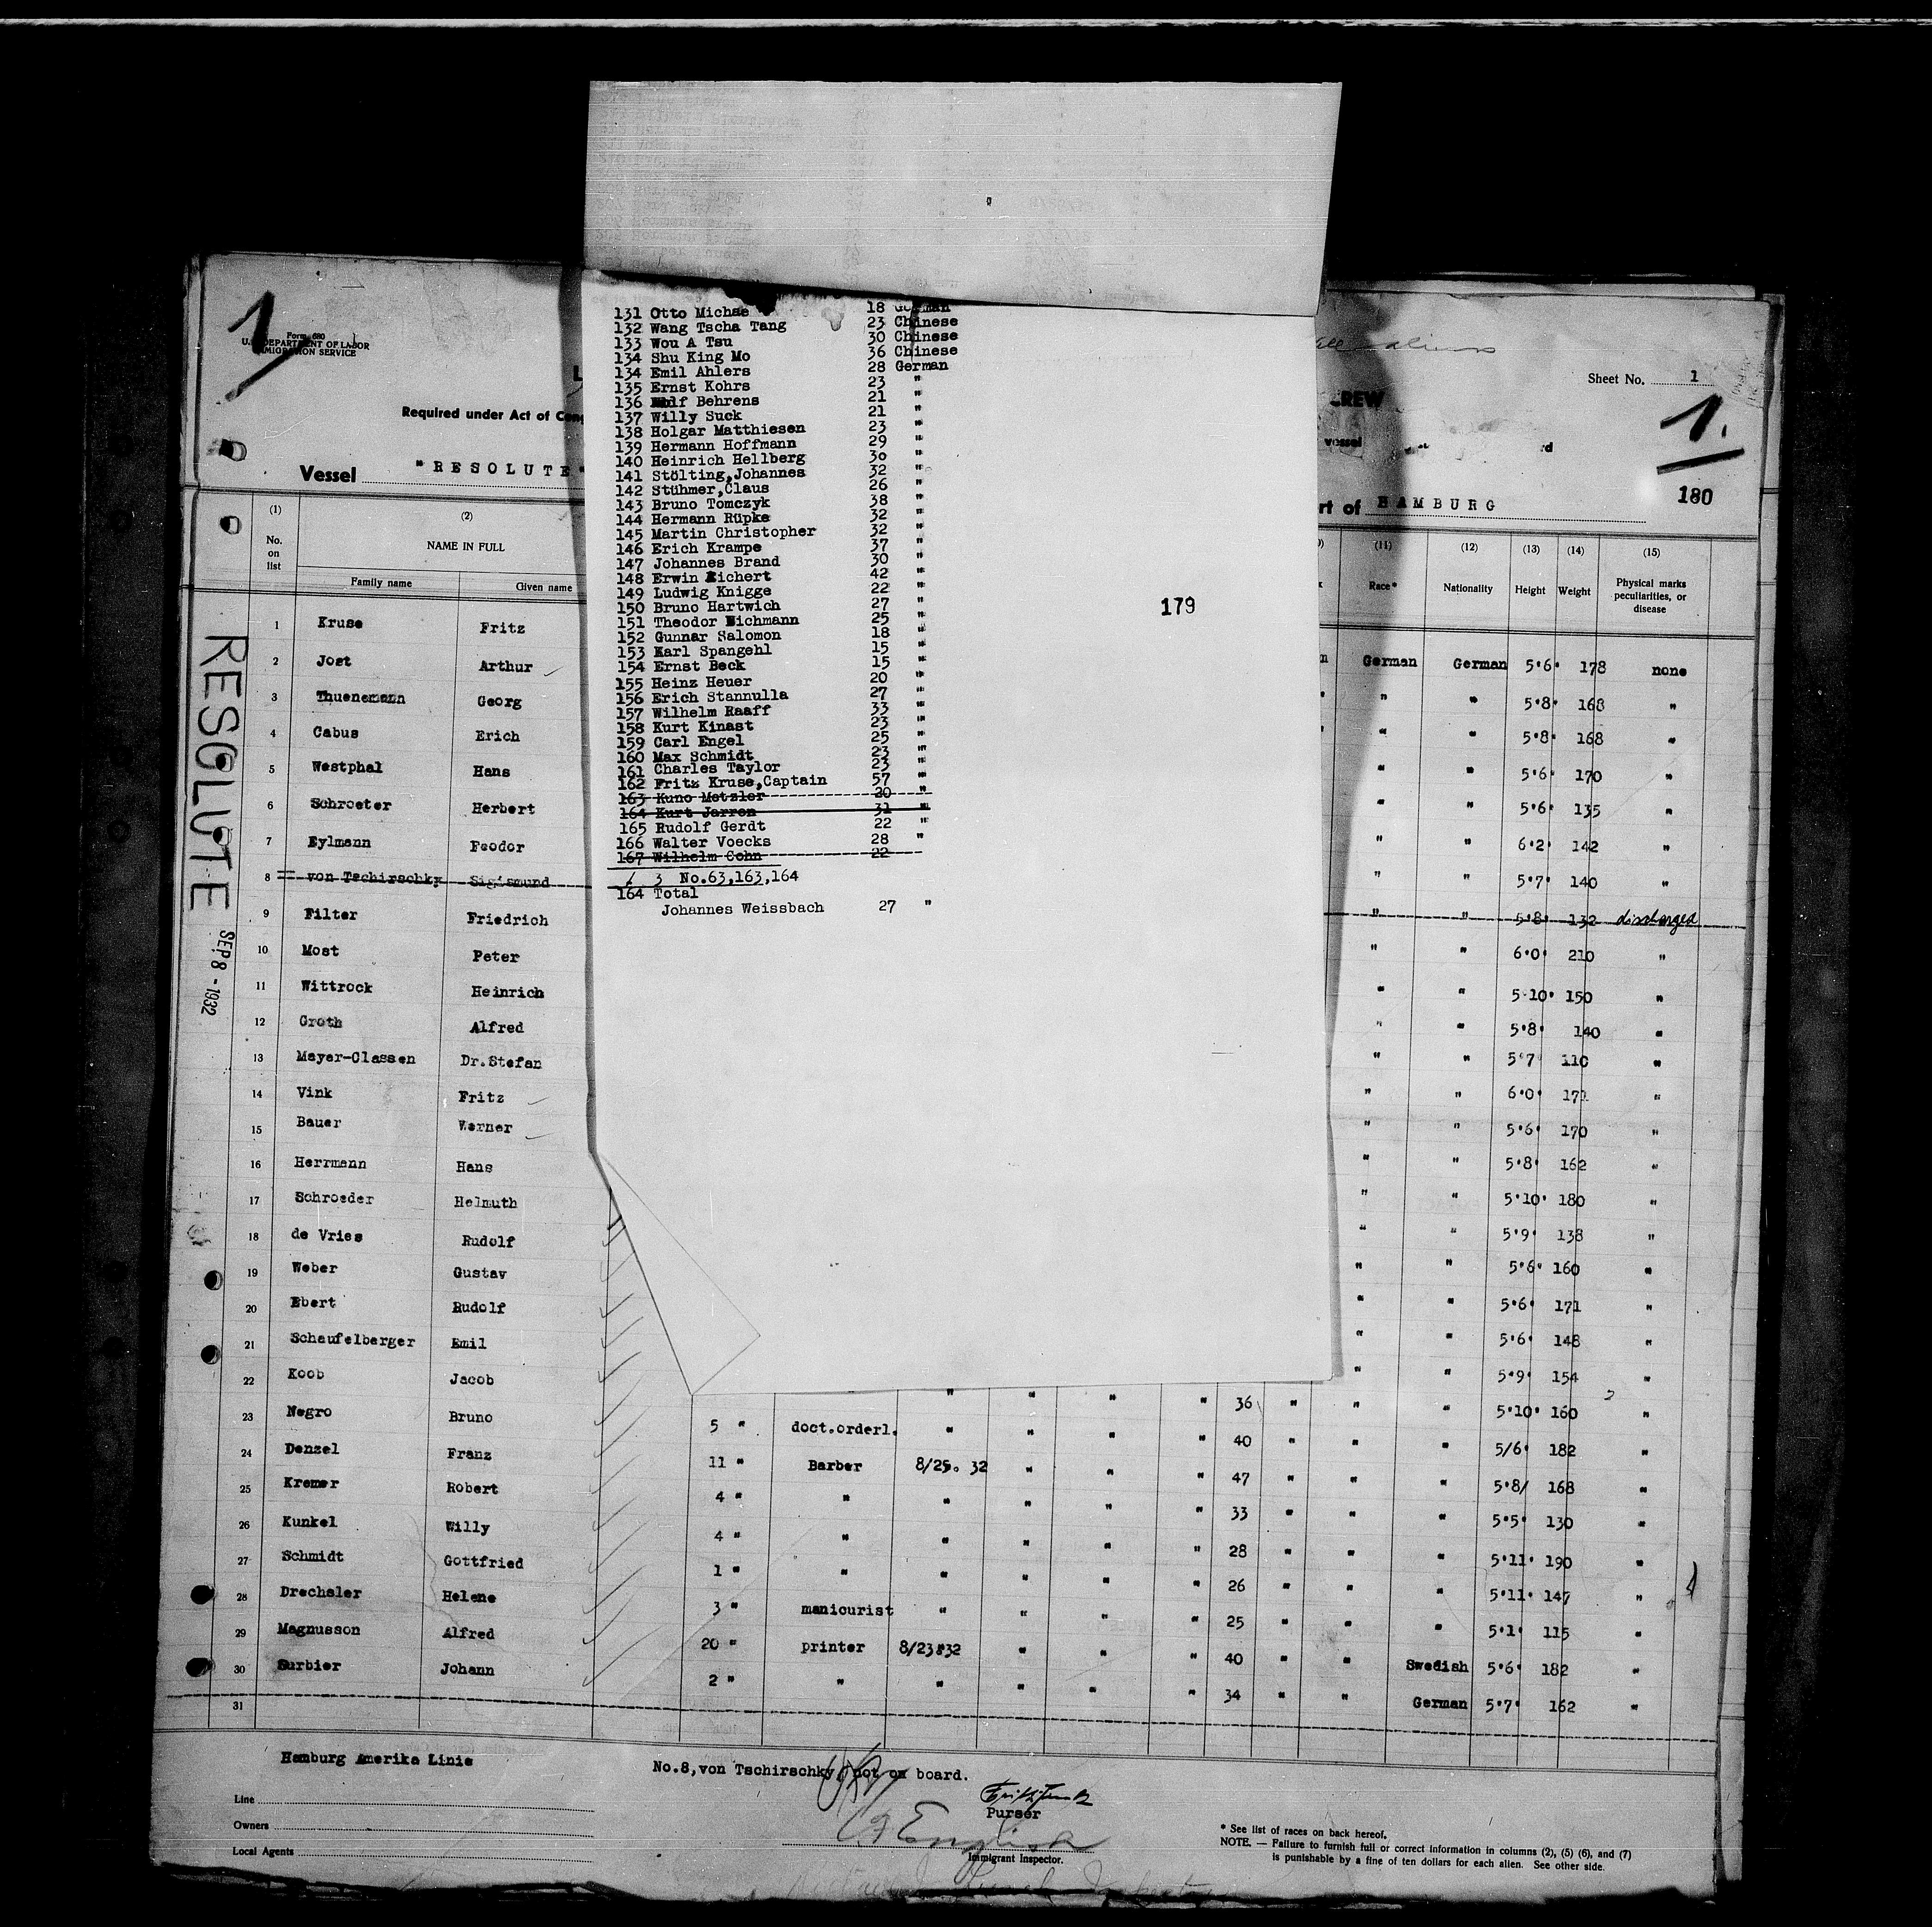 1
Form 680
U.S. DEPARTMENT OF LABOR
IMMIGRATION SERVICE
Required under Act of Cong
Vessel "RESOLUTE"
(1) (2)
No. on list
NAME IN FULL
Family name Given name
RESOLUTE
SEP 8 - 1932
1 Kruse Fritz
2 Jost Arthur
3 Thuenemann Georg
4 Cabus Erich
5 Westphal Hans
6 Schroeter Herbert
7 Eylmann Feodor
8 von Tschirschky Sigismund
9 Filter Friedrich
10 Most Peter
11 Wittrock Heinrich
12 Groth Alfred
13 Mayer-Classen Dr.Stefan
14 Vink Fritz
15 Bauer Werner
16 Herrmann Hans
17 Schroeder Helmuth
18 de Vries Rudolf
19 Weber Gustav
20 Ebert Rudolf
21 Schaufelberger Emil
22 Koob Jacob
23 Negro Bruno
24 Denzel Franz
25 Kremer Robert
26 Kunkel Willy
27 Schmidt Gottfried
28 Drechsler Helene
29 Magnusson Alfred
30 Surbier Johann
31
131 Otto Michae 18 German
132 Wang Tscha Tang 23 Chinese
133 Wou A Tsu 30 Chinese
134 Shu King Mo 36 Chinese
134 Emil Ahlers 28 German
135 Ernst Kohrs 23 "
136 Rolf Behrens 21 "
137 Willy Suck 21 "
138 Holgar Matthiesen 23 "
139 Hermann Hoffmann 29 "
140 Heinrich Hellberg 30 "
141 Stölting,Johannes 32 "
142 Stühmer,Claus 26 "
143 Bruno Tomczyk 38 "
144 Hermann Rüpke 32 "
145 Martin Christopher 32 "
146 Erich Krampe 37 "
147 Johannes Brand 30 "
148 Erwin Eichert 42 "
149 Ludwig Knigge 22 "
150 Bruno Hartwich 27 "
151 Theodor Wichmann 25 "
152 Gunnar Salomon 18 "
153 Karl Spangehl 15 "
154 Ernst Beck 15 "
155 Heinz Heuer 20 "
156 Erich Stannulla 27 "
157 Wilhelm Raaff 33 "
158 Kurt Kinast 23 "
159 Carl Engel 25 "
160 Max Schmidt 23 "
161 Charles Taylor 23 "
162 Fritz Kruse,Captain 57 "
163 Kuno Metzler 20 "
164 Kurt Jarren 31 "
165 Rudolf Gerdt 22 "
166 Walter Voecks 28 "
167 Wilhelm Cohn 22
3 No.63,163,164
164 Total
Johannes Weissbach 27 "
179
aliens
Sheet No. 1
CREW
vessel
1.
180
rt of HAMBURG
(11) (12) (13) (14) (15)
Race* Nationality Height Weight Physical marks peculiarities, or disease
German German 5'6' 178 none
" " 5'8' 168 "
" " 5'8' 168 "
" " 5'6' 170 "
" " 5'6' 135 "
" " 6'2' 142 "
" " 5'7' 140 "
" " 5'8' 132 discharged
" " 6'0' 210 "
" " 5'10' 150 "
" " 5'8' 140 "
" " 5'7' 110 "
" " 6'0' 171 "
" " 5'6' 170 "
" " 5'8' 162 "
" " 5'10' 180 "
" " 5'9' 138 "
" " 5'6' 160 "
" " 5'6' 171 "
" " 5'6' 148 "
" " 5'9' 154 "
" " " " 36 " " " 5'10' 160 "
5 " doct.orderl. " " " " 40 " " " 5/6' 182 "
11 " Barber 8/25. 32 " " " 47 " " " 5'8/ 168 "
4 " " " " " " 33 " " " 5'5' 130 "
4 " " " " " " 28 " " " 5'11' 190 "
1 " " " " " " 26 " " " 5'11' 147 "
3 " manicurist " " " " 25 " " " 5'1' 115 "
20 " printer 8/23/32 " " " 40 " " Swedish 5'6' 182 "
2 " " " " " " 34 " " German 5'7' 162 "
Hamburg Amerika Linie
No.8,von Tschirschky, not on board.
Purser
Line
Owners
Local Agents
English
Immigrant Inspector.
* See list of races on back hereof.
NOTE. — Failure to furnish full or correct information in columns (2), (5) (6), and (7)
is punishable by a fine of ten dollars for each alien. See other side.